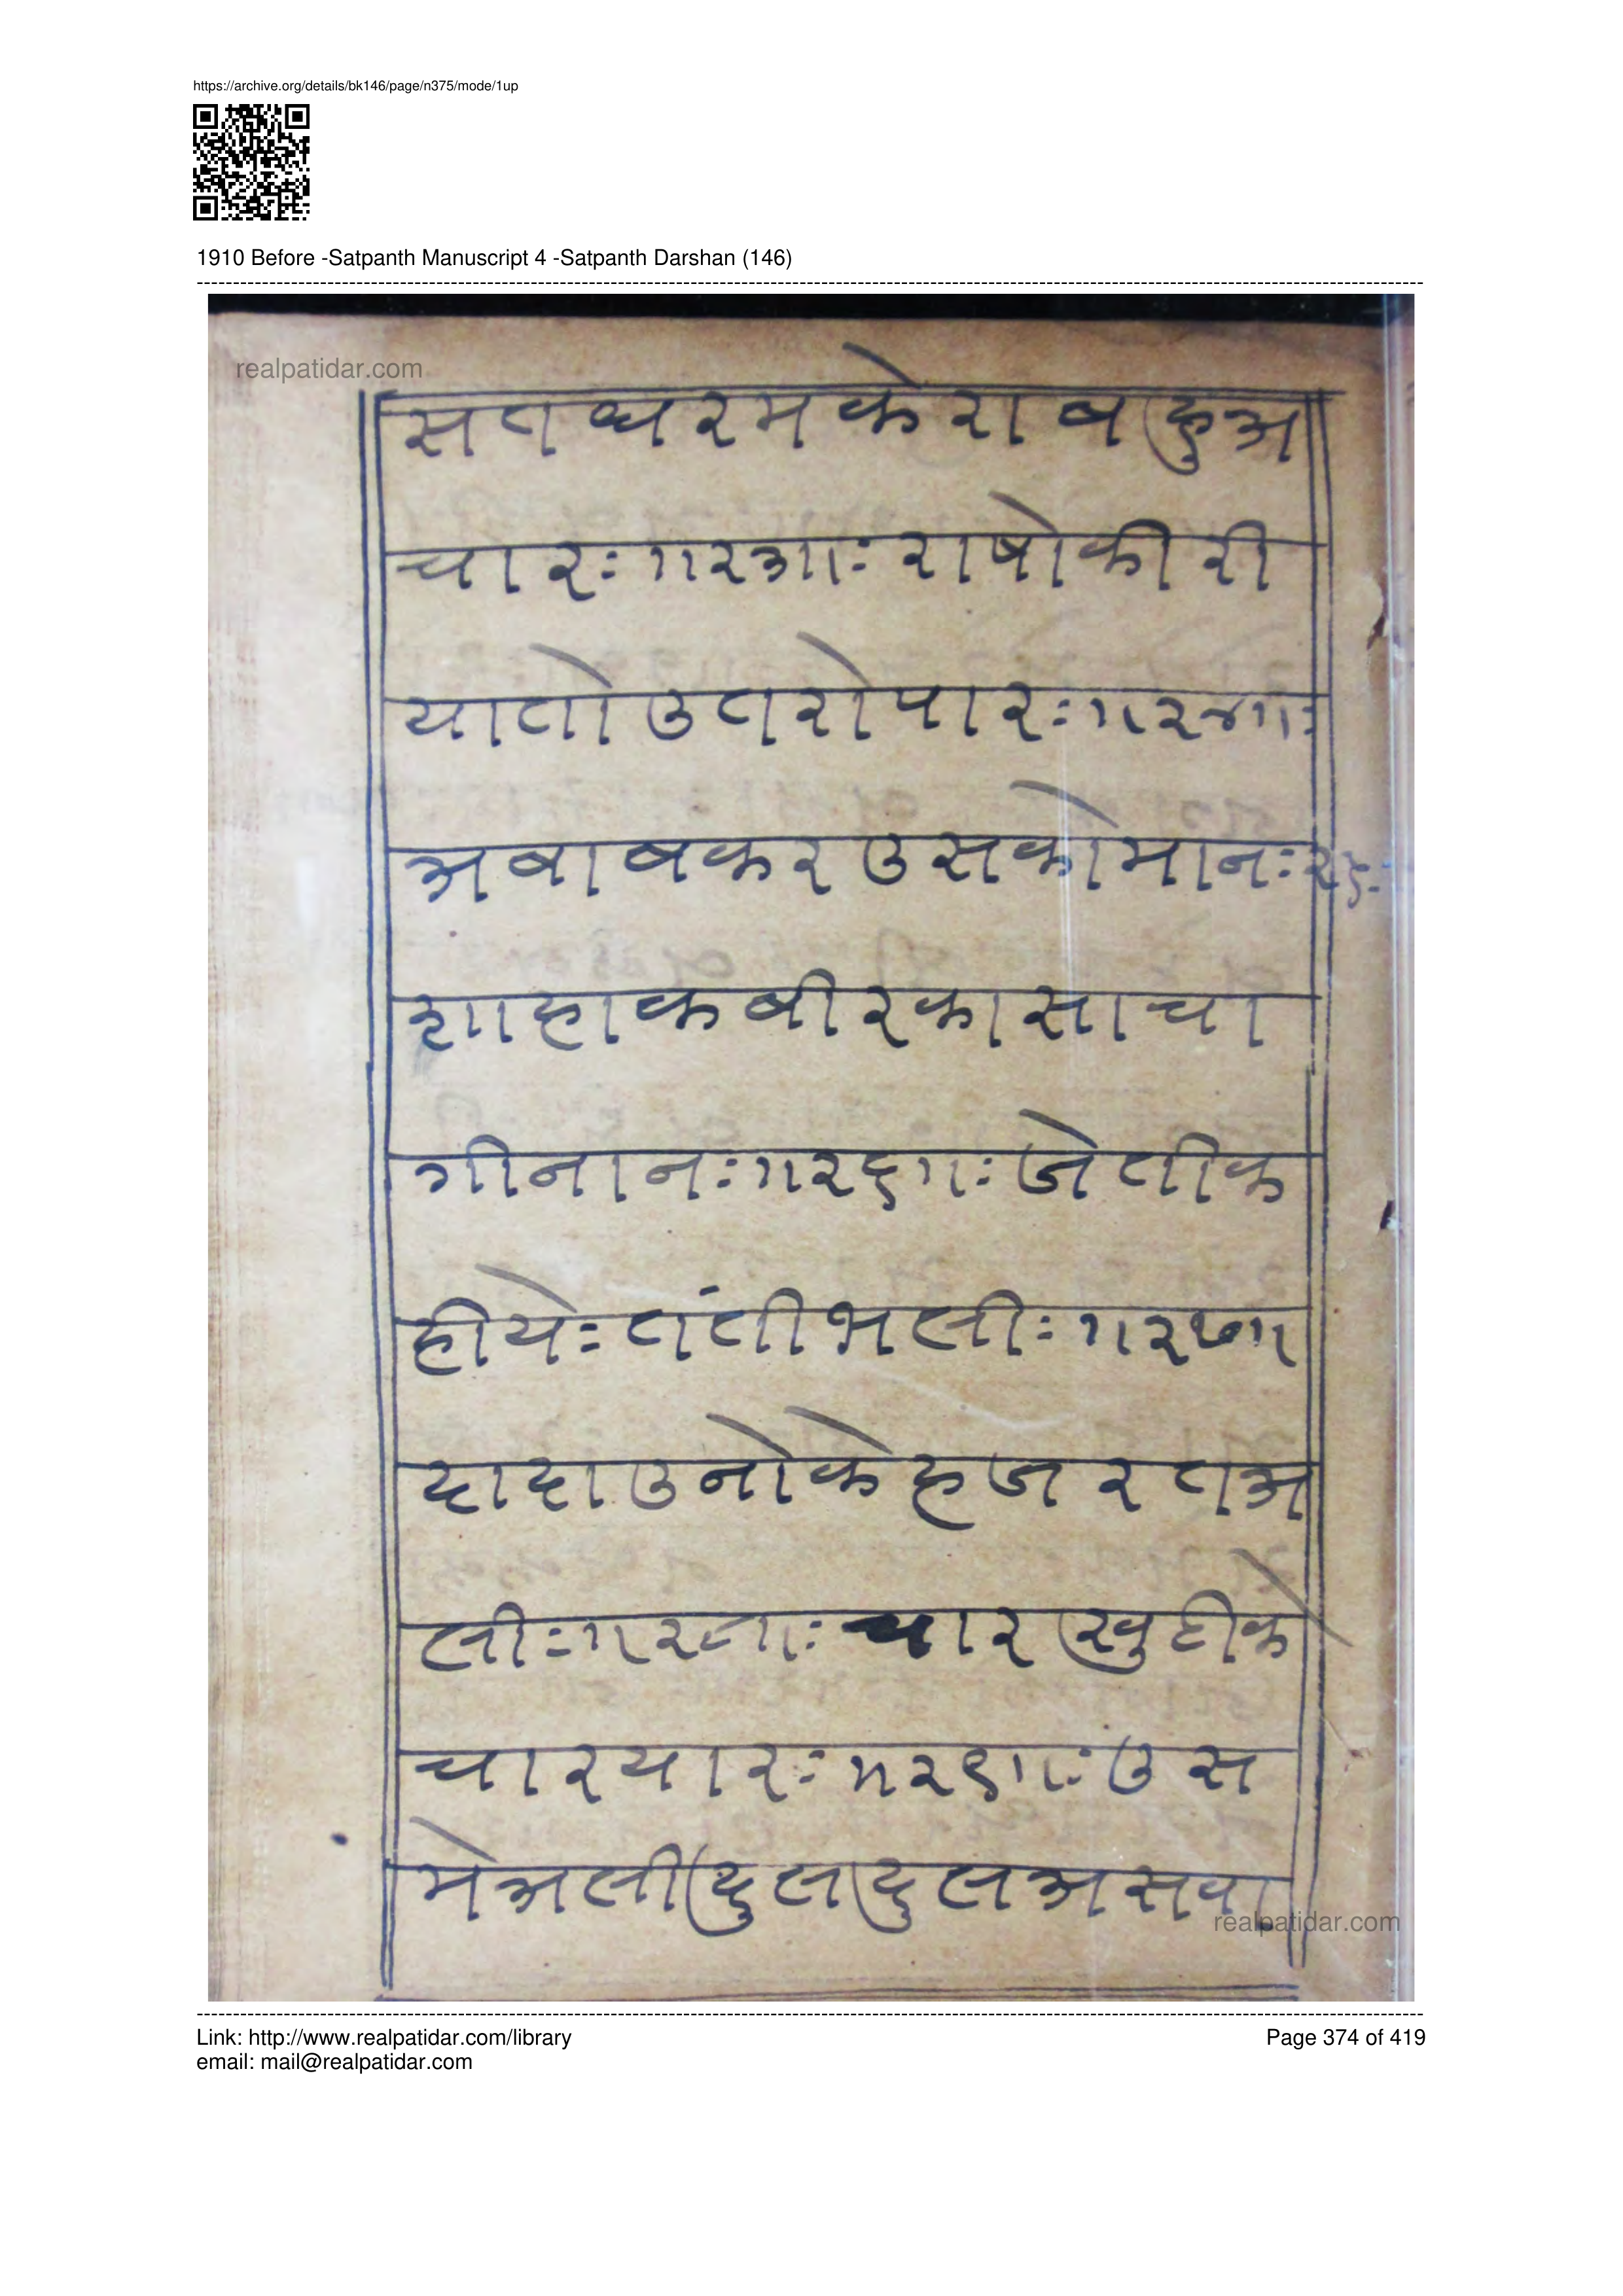 https://archive.org/details/bk146/page/n375/mode/1up
1910 Before -Satpanth Manuscript 4 -Satpanth Darshan (146)
realpatidar.com
सतधरमकेराषहुअ
चारः॥२३॥ः राषोकीरी
यातोउतरोपारः॥२४॥ः
अबाबकरउसकोमानः२५ः
शाहाकबीरकासाचा
गीनानः॥२६॥ः जेतीक
हीयेः तंतीभलीः॥२७॥
दादाउनोकेहजरतअ
लीः॥२८॥ः चारखुटीके
चारयारः॥२९॥ः उस
मेअलीदुलदुलअसवा
realpatidar.com
Link: http://www.realpatidar.com/library
Page 374 of 419
email: mail@realpatidar.com